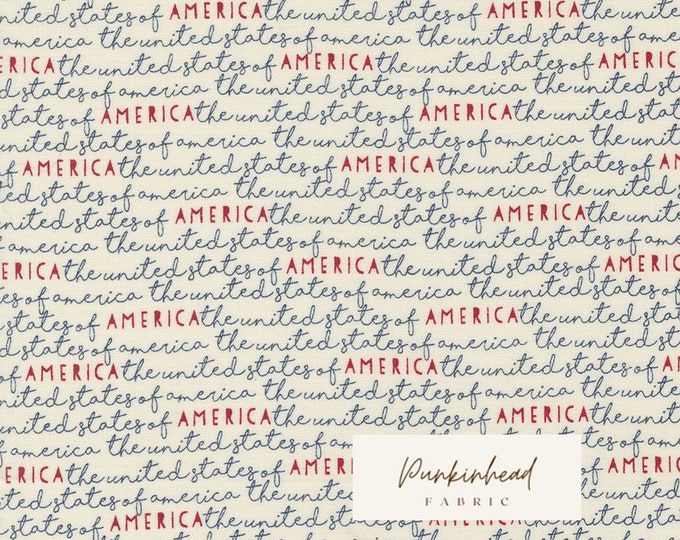 united states of america the united states of america the united
states of america the united states of america the united states
AMERICA the united states of AMERICA the united states of
states of america the united states of america the united states
states of AMERICA the united states of AMERICA the united
united states of america the united states of america the
of AMERICA the united states of AMERICA the united states of
united states of america the united states of america the united
united states of AMERICA the united states of AMERICA the
of america the united states of america the united states of
ERICA the united states of AMERICA the united states of AMERIC
states of america the united states of america the united states
states of AMERICA the united states of AMERICA the united
united states of america the united states of america the
of AMERICA the united states of AMERICA the united states of
united states of america the united states of america the united
united states of AMERICA the united states of AMERICA the united
of america the united states of
ERICA the united states of AMERI
states of america the united
states of AMERICA the united states of AMERICA the united
Punkinhead
FABRIC